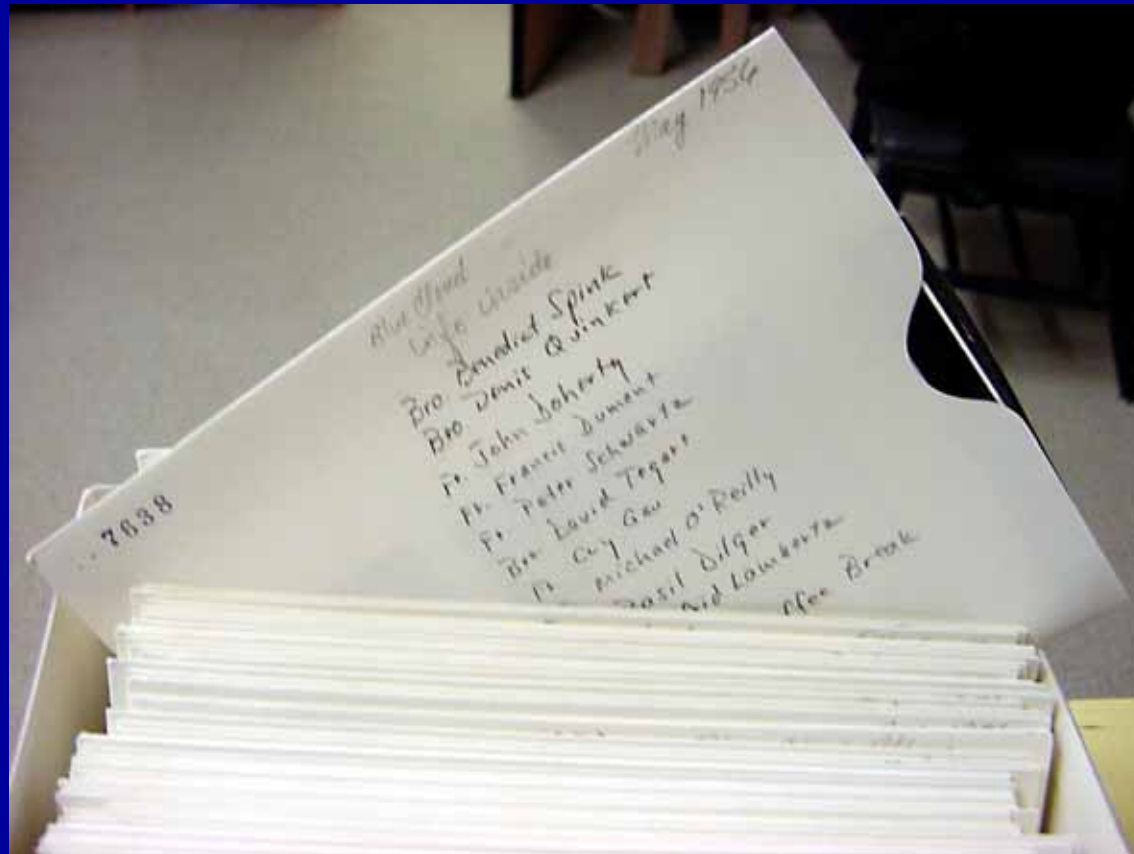 May 1956
Blue Cloud
info inside
Bro. Benedict Spink
Bro. Denis Quinkert
Fr. John Doherty
Fr. Francis Dument
Fr. Peter Schwartz
Bro. David Tegart
Fr. Guy Gau
Michael O'Reilly
Basil Dilger
Lambertz
Break
7638